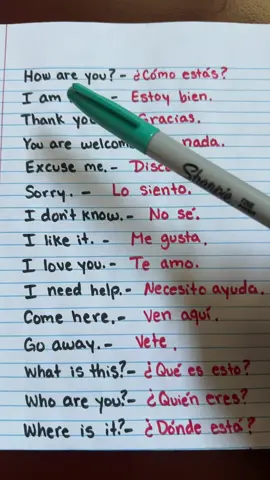 How are you? - ¿Cómo estás?
I am - Estoy bien.
Thank you Gracias.
You are welcome nada.
Excuse me. - Disc
Sorry. - Lo siento.
I don't know. - No sé.
I like it. - Me gusta.
I love you. - Te amo.
I need help. - Necesito ayuda.
Come here. - Ven aquí.
Go away. - Vete.
What is this? - ¿Qué es esto?
Who are you? - ¿Quién eres?
Where is it? - ¿Dónde está?
Sharpie